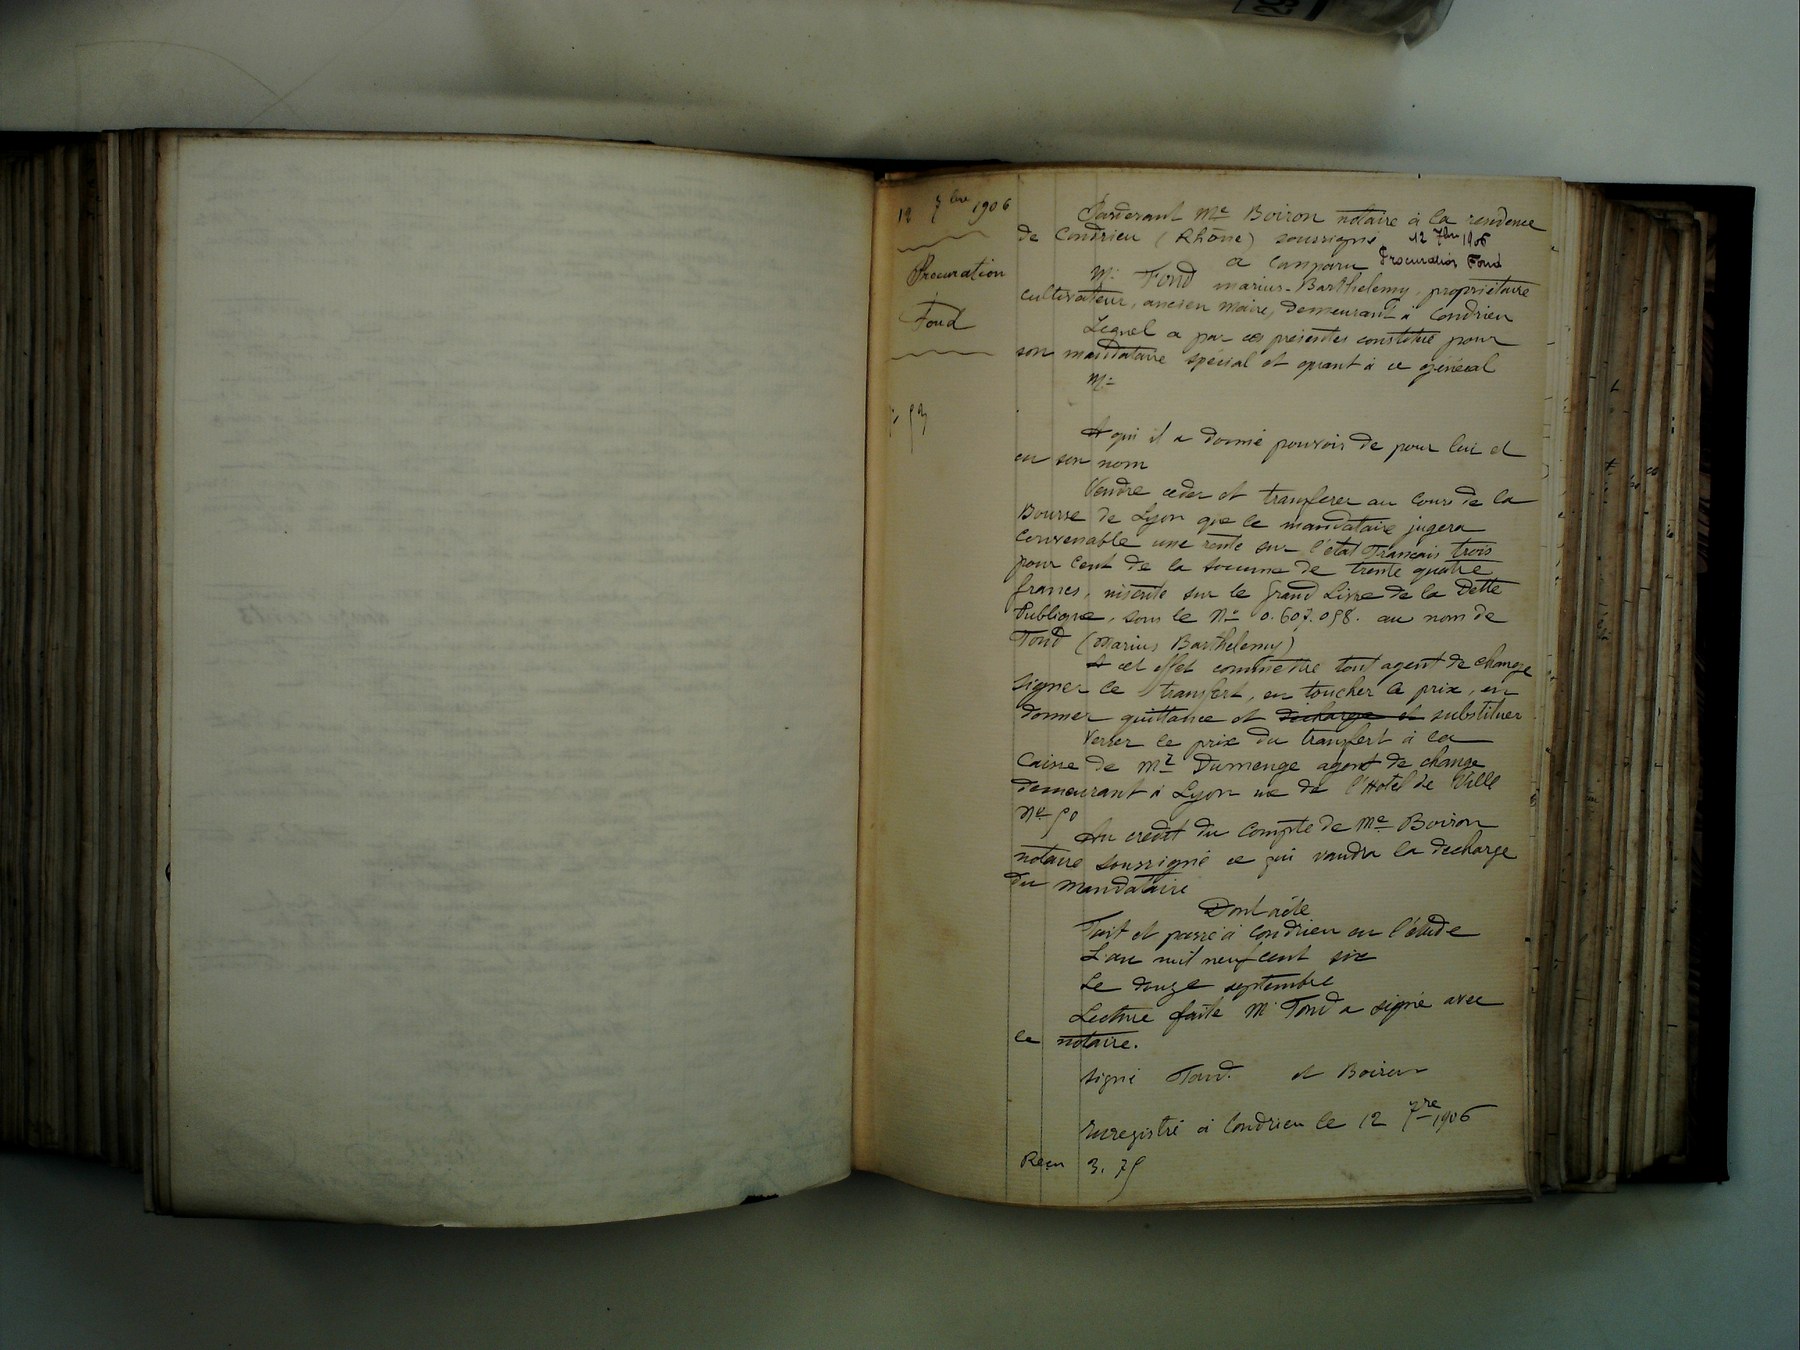 12 7bre 1906
Procuration
Fond
53
Pardevant Me Boiron notaire à la residence
de Condrieu (Rhône) soussigné 12 7bre 1906
a comparu Procuration Fond
Mr Fond Marius-Barthelemy, propriétaire
cultivateur, ancien Maire, demeurant à Condrieu
Lequel a par ces présentes constitué pour
son mandataire spécial et quant à ce général
Mr
A qui il a donné pouvoir de pour lui et
en son nom
Vendre céder et transferer au cours de la
Bourse de Lyon que le mandataire jugera
convenable une rente sur l'état Français trois
pour cent de la somme de trente quatre
francs, inscrite sur le Grand Livre de la Dette
Publique, sous le No 0.607.058. au nom de
Fond (Marius Barthelemy)
A cet effet commettre tout agent de change
signer le transfert, en toucher le prix, en
donner quittance et décharge et substituer
Verser le prix du transfert à la
Caisse de Mr Dumenge agent de change
demeurant à Lyon rue de l'Hotel de Ville
No 50
Au credit du Compte de Me Boiron
notaire soussigné ce qui vaudra la decharge
du mandataire
Dont acte
Fait et passé à Condrieu en l'étude
L'an mil neuf cent six
Le douze septembre
Lecture faite Mr Fond a signé avec
le notaire.
Signé Fond. et Boiron
Enregistré à Condrieu le 12 7re 1906
Reçu 3.75